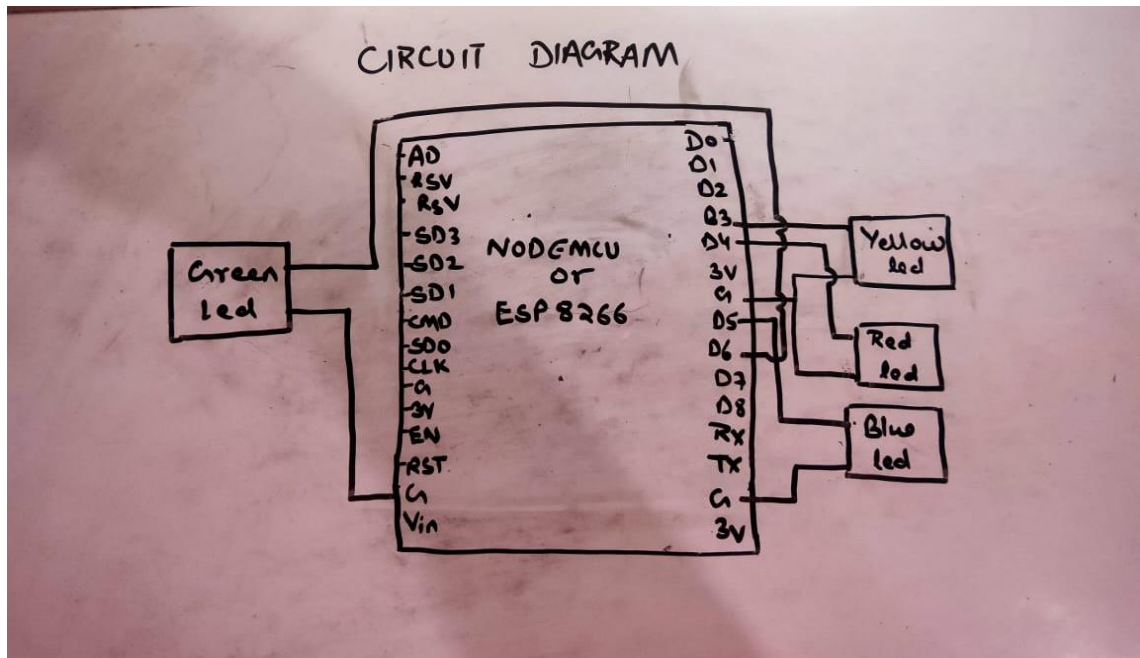 CIRCUIT DIAGRAM
AD
RSV
RSV
SD3
SD2
SD1
CMD
SD0
CLK
G
3V
EN
RST
G
Vin
NODEMCU
or
ESP 8266
D0
D1
D2
D3
D4
3V
G
D5
D6
D7
D8
RX
TX
G
3V
Green
led
Yellow
led
Red
led
Blue
led